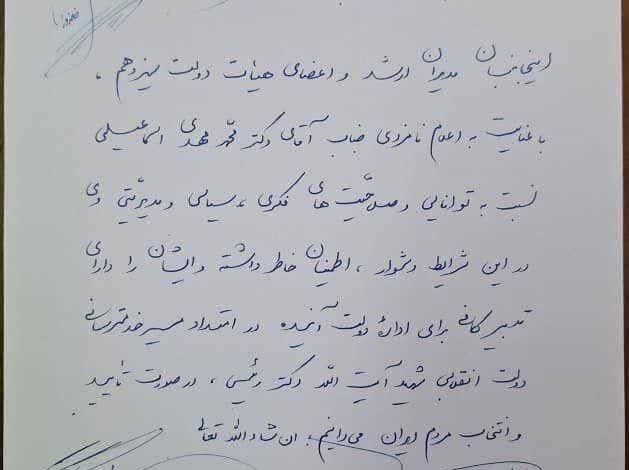 اینجانبان مدیران ارشد و اعضای هیأت دولت سیزدهم ،
با عنایت به اعلام نامزدی جناب آقای دکتر محمد مهدی اسماعیلی
نسبت به توانایی و صلاحیت های فکری ، سیاسی و مدیریتی وی
در این شرایط دشوار ، اطمینان خاطر داشته و ایشان را دارای
تدبیر کافی برای ادارۀ دولت آینده در امتداد مسیر خدمترسانی
دولت انقلابی شهید آیت الله دکتر رئیسی ، در صورت تأیید
و انتخاب مردم ایران می‌دانیم . ان شاء الله تعالی